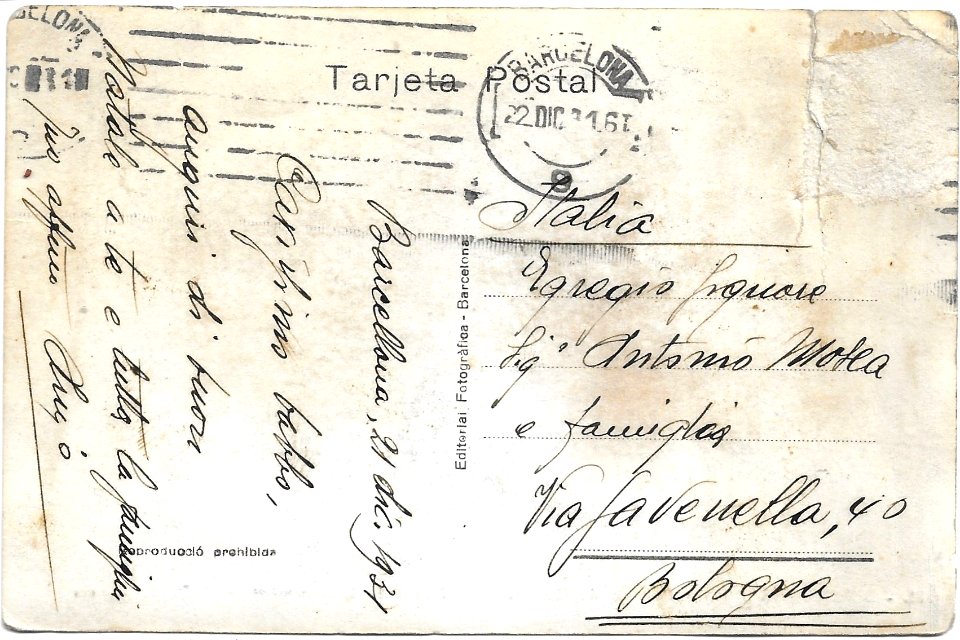 Tarjeta Postal
BARCELONA
22 DIC 31 6T
Barcellona, 21 dic. 1931
Carissimo babbo,
auguri di buon
Natale a te e tutta la famiglia
tuo affmo
Italia
Egregio Signore
Sig. Antonio Mosca
e famiglia
Via Savenella, 40
Bologna
Editorial Fotogràfica - Barcelona
Reproducció prohibida